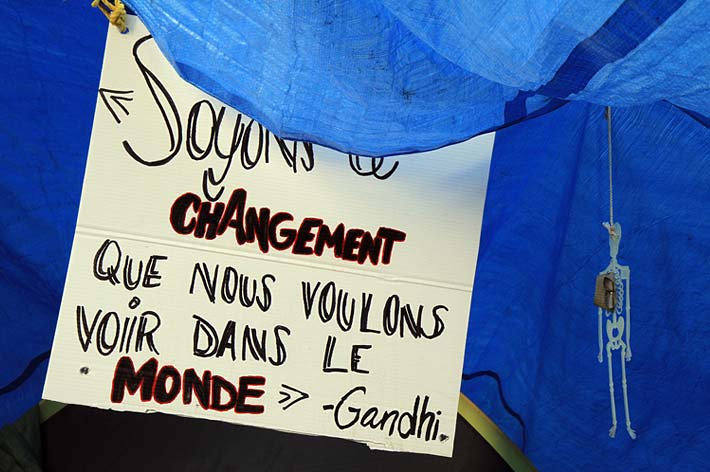 « Soyons le
CHANGEMENT
QUE NOUS VOULONS
VOIR DANS LE
MONDE » -Gandhi